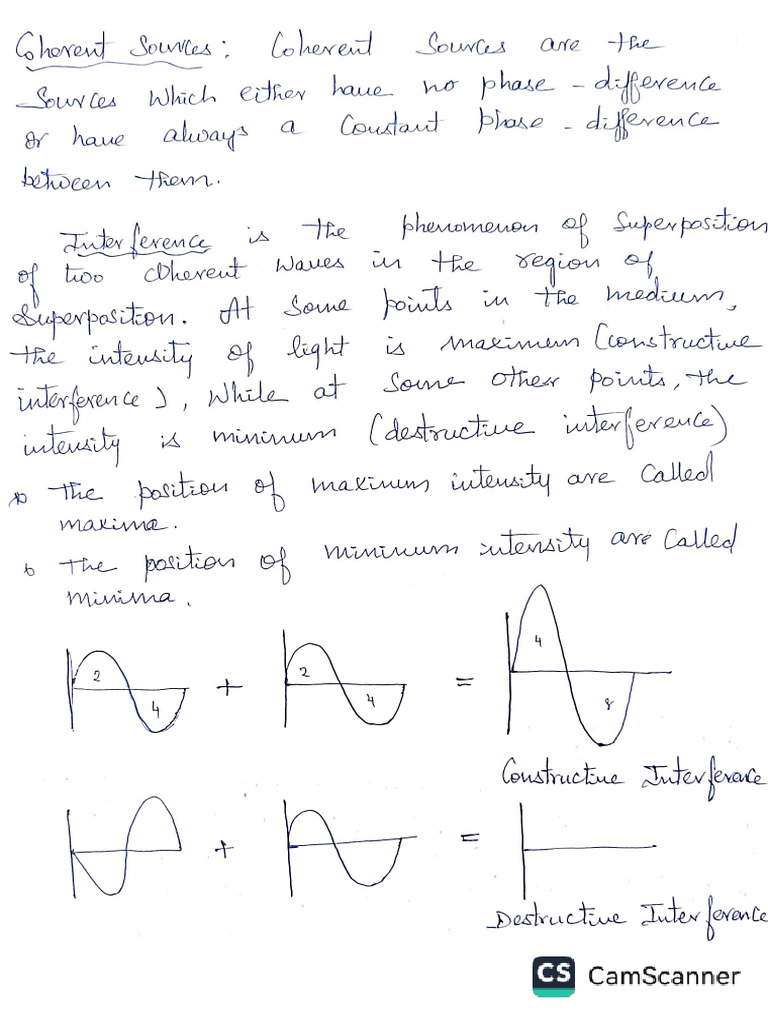 Coherent Sources: Coherent Sources are the
Sources which either have no phase-difference
or have always a Constant phase-difference
between them.
Interference is the phenomenon of Superposition
of two Coherent waves in the region of
Superposition. At Some points in the medium,
the intensity of light is maximum (constructive
interference), while at some other points, the
intensity is minimum (destructive interference)
The position of maximum intensity are called
maxima.
The position of minimum intensity are called
minima.
2 4 + 2 4 = 4 8
Constructive Interference
+ =
Destructive Interference
CS CamScanner